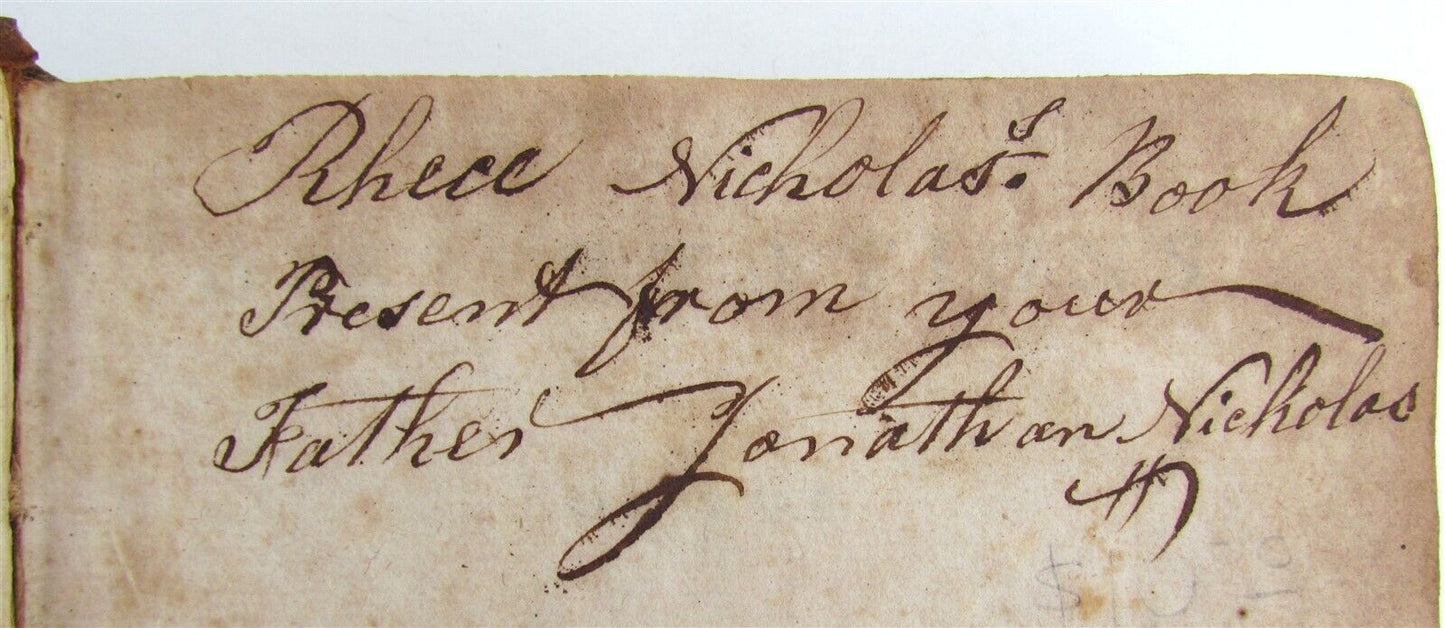 Rhece Nicholas.s Book
Present from your
Father Jonathan Nicholas